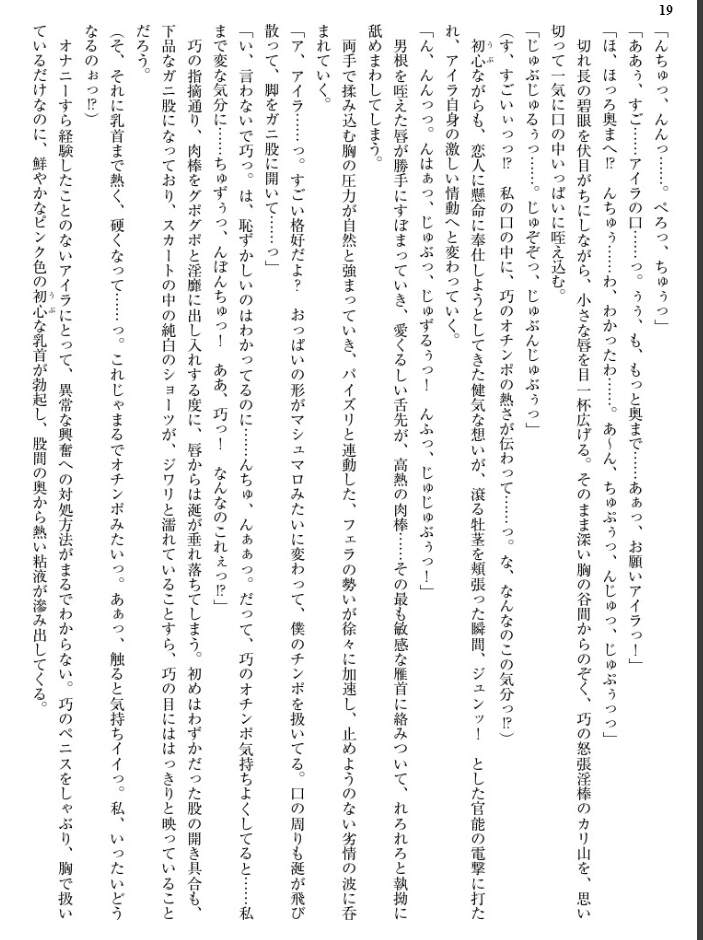 19
「んちゅっ、んんっ……。ぺろっ、ちゅぅっ」
「ああぅ、すご……アイラの口……っ。ぅぅ、も、もっと奥まで……あぁっ、お願いアイラっ！」
「ほ、ほっろ奥まへ⁉　んちゅぅ……わ、わかったわ……。あ〜ん、ちゅぷぅっ、んじゅっ、じゅぷぅっっ」
　切れ長の碧眼を伏目がちにしながら、小さな唇を目一杯広げる。そのまま深い胸の谷間からのぞく、巧の怒張淫棒のカリ山を、思い
切って一気に口の中いっぱいに咥え込む。
「じゅぶじゅるぅっ……。じゅぞぞっ、じゅぶんじゅぶぅっ」
（す、すごいぃっっ⁉　私の口の中に、巧のオチンポの熱さが伝わって……っ。な、なんなのこの気分っ⁉）
　初心うぶながらも、恋人に懸命に奉仕しようとしてきた健気な想いが、滾る牡茎を頬張った瞬間、ジュンッ！　とした官能の電撃に打た
れ、アイラ自身の激しい情動へと変わっていく。
「ん、んんっっ。んはぁっ、じゅぶっ、じゅずるぅっ！　んふっ、じゅじゅぶぅっ！」
　男根を咥えた唇が勝手にすぼまっていき、愛くるしい舌先が、高熱の肉棒……その最も敏感な雁首に絡みついて、れろれろと執拗に
舐めまわしてしまう。
　両手で揉み込む胸の圧力が自然と強まっていき、パイズリと連動した、フェラの勢いが徐々に加速し、止めようのない劣情の波に呑
まれていく。
「ア、アイラ……っ。すごい格好だよ？　おっぱいの形がマシュマロみたいに変わって、僕のチンポを扱いてる。口の周りも涎が飛び
散って、脚をガニ股に開いて……っ」
「い、言わないで巧っ。は、恥ずかしいのはわかってるのに……んちゅ、んぁぁっ。だって、巧のオチンポ気持ちよくしてると……私
まで変な気分に……ちゅずぅっ、んぽんちゅっ！　ああ、巧っ！　なんなのこれぇっ⁉」
　巧の指摘通り、肉棒をグポグポと淫靡に出し入れする度に、唇からは涎が垂れ落ちてしまう。初めはわずかだった股の開き具合も、
下品なガニ股になっており、スカートの中の純白のショーツが、ジワリと濡れていることすら、巧の目にははっきりと映っていること
だろう。
（そ、それに乳首まで熱く、硬くなって……っ。これじゃまるでオチンポみたいっ。あぁっ、触ると気持ちイイっ。私、いったいどう
なるのぉっ⁉）
　オナニーすら経験したことのないアイラにとって、異常な興奮への対処方法がまるでわからない。巧のペニスをしゃぶり、胸で扱い
ているだけなのに、鮮やかなピンク色の初心うぶな乳首が勃起し、股間の奥から熱い粘液が滲み出してくる。